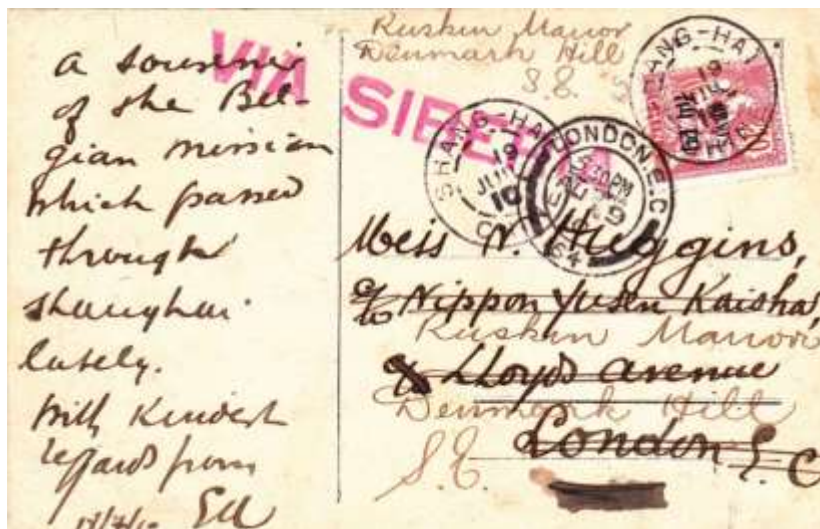 a souvenir
of the Bel-
gian mission
which passed
through
Shanghai
lately.
With kindest
regards from
17/7/10
VIA SIBERIA
Ruskin Manor
Denmark Hill
S.E.
SHANG-HAI
CHINE
SHANG-HAI
19
JUIL
10
LONDON.E.C
5.30PM
AU 9
Miss N. Huggins,
c/o Nippon Yusen Kaisha,
Ruskin Manor
Lloyds avenue
Denmark Hill
London E.C
S.E.